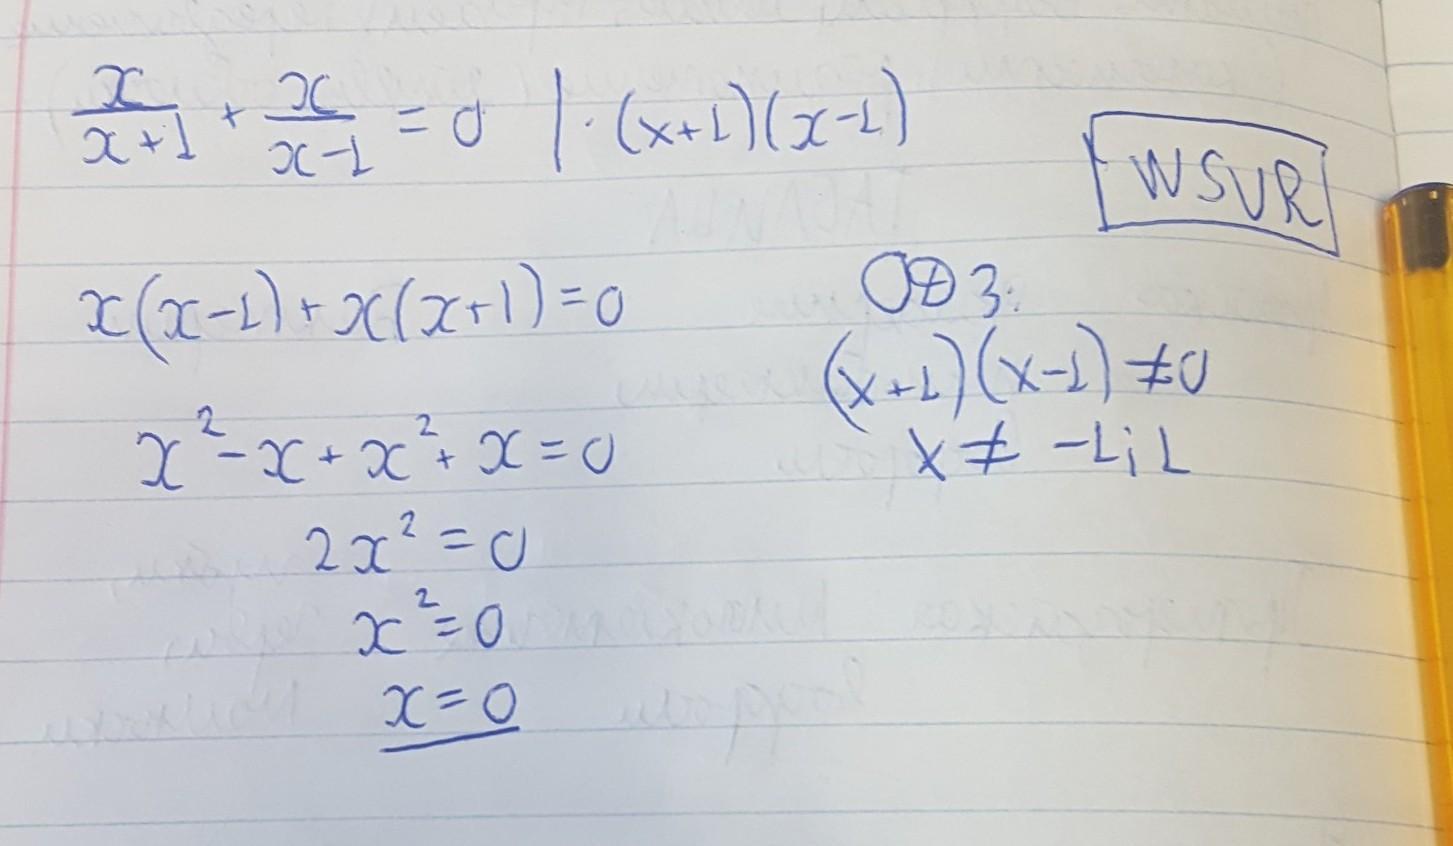 x/(x+1) + x/(x-1) = 0 | · (x+1)(x-1)
WSVR
x(x-1) + x(x+1) = 0
x² - x + x² + x = 0
2x² = 0
x² = 0
x = 0
ОДЗ:
(x+1)(x-1) ≠ 0
x ≠ -1; 1